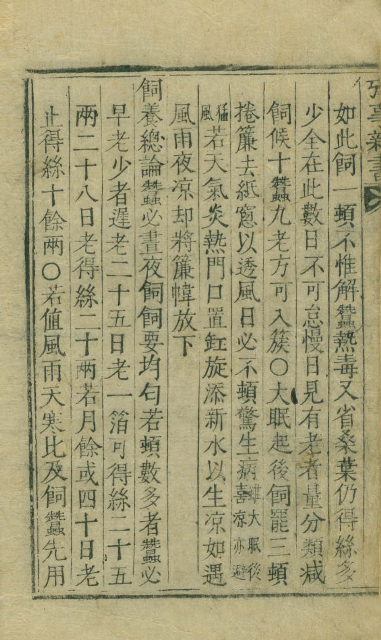 攷事新書
如此飼一頓不惟解蠶熱毒又省桑葉仍得絲多
少全在此數日不可怠慢日見有老者量分類減
飼候十蠶九老方可入簇〇大眠起後飼罷三頓
捲簾去紙窓以透風日必不頓驚生病雖大眠後喜凉亦避
猛風若天氣炎熱門口置缸旋添新水以生凉如遇
風雨夜凉却將簾幃放下
飼養總論蠶必晝夜飼飼要均匀若頓數多者蠶必
早老少者遲老二十五日老一箔可得絲二十五
兩二十八日老得絲二十兩若月餘或四十日老
止得絲十餘兩〇若値風雨天寒比及飼蠶先用